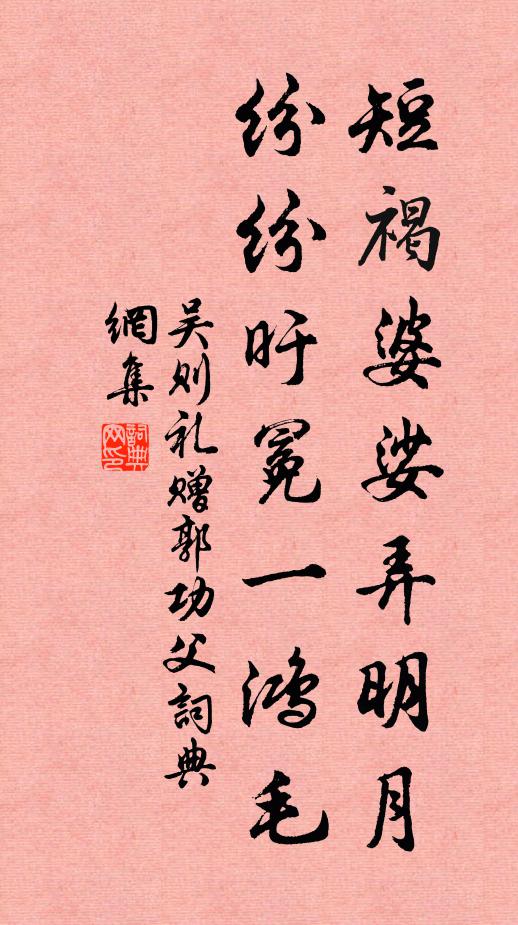 短褐婆娑弄明月
纷纷旴冕一鸿毛
吴则礼赠郭功父詞典
網集
詞典
网印